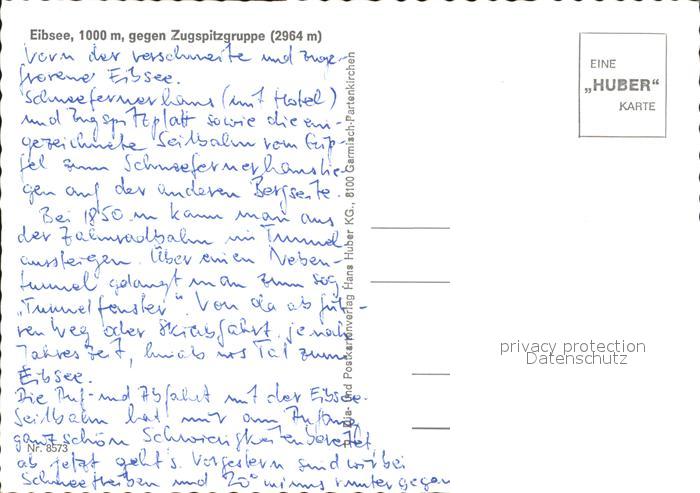 Eibsee, 1000 m, gegen Zugspitzgruppe (2964 m)
Vorn der verschneite und zuge-
frorene Eibsee.
Schneefernerhaus (mit Hotel)
und Zugspitzplatt sowie die ein-
gezeichnete Seilbahn vom Gip-
fel zum Schneefernerhaus lie-
gen auf der anderen Bergseite.
Bei 1850 m kann man aus
der Zahnradbahn im Tunnel
aussteigen. Über einen Neben-
tunnel gelangt man zum sog.
"Tunnelfenster". Von da ab füh-
ren Weg oder Skiabfahrt, je nach
Jahreszeit, hinab ins Tal zum
Eibsee.
Die Auf- und Abfahrt mit der Eibsee-
Seilbahn hat mir am Anfang
ganz schön Schwierigkeiten bereitet,
ab jetzt geht's. Vorgestern sind wir bei
Schneetreiben und 20° minus runter gegen
Nr. 8573
Postkartenverlag Hans Huber KG., 8100 Garmisch-Partenkirchen
EINE
„HUBER"
KARTE
privacy protection
Datenschutz